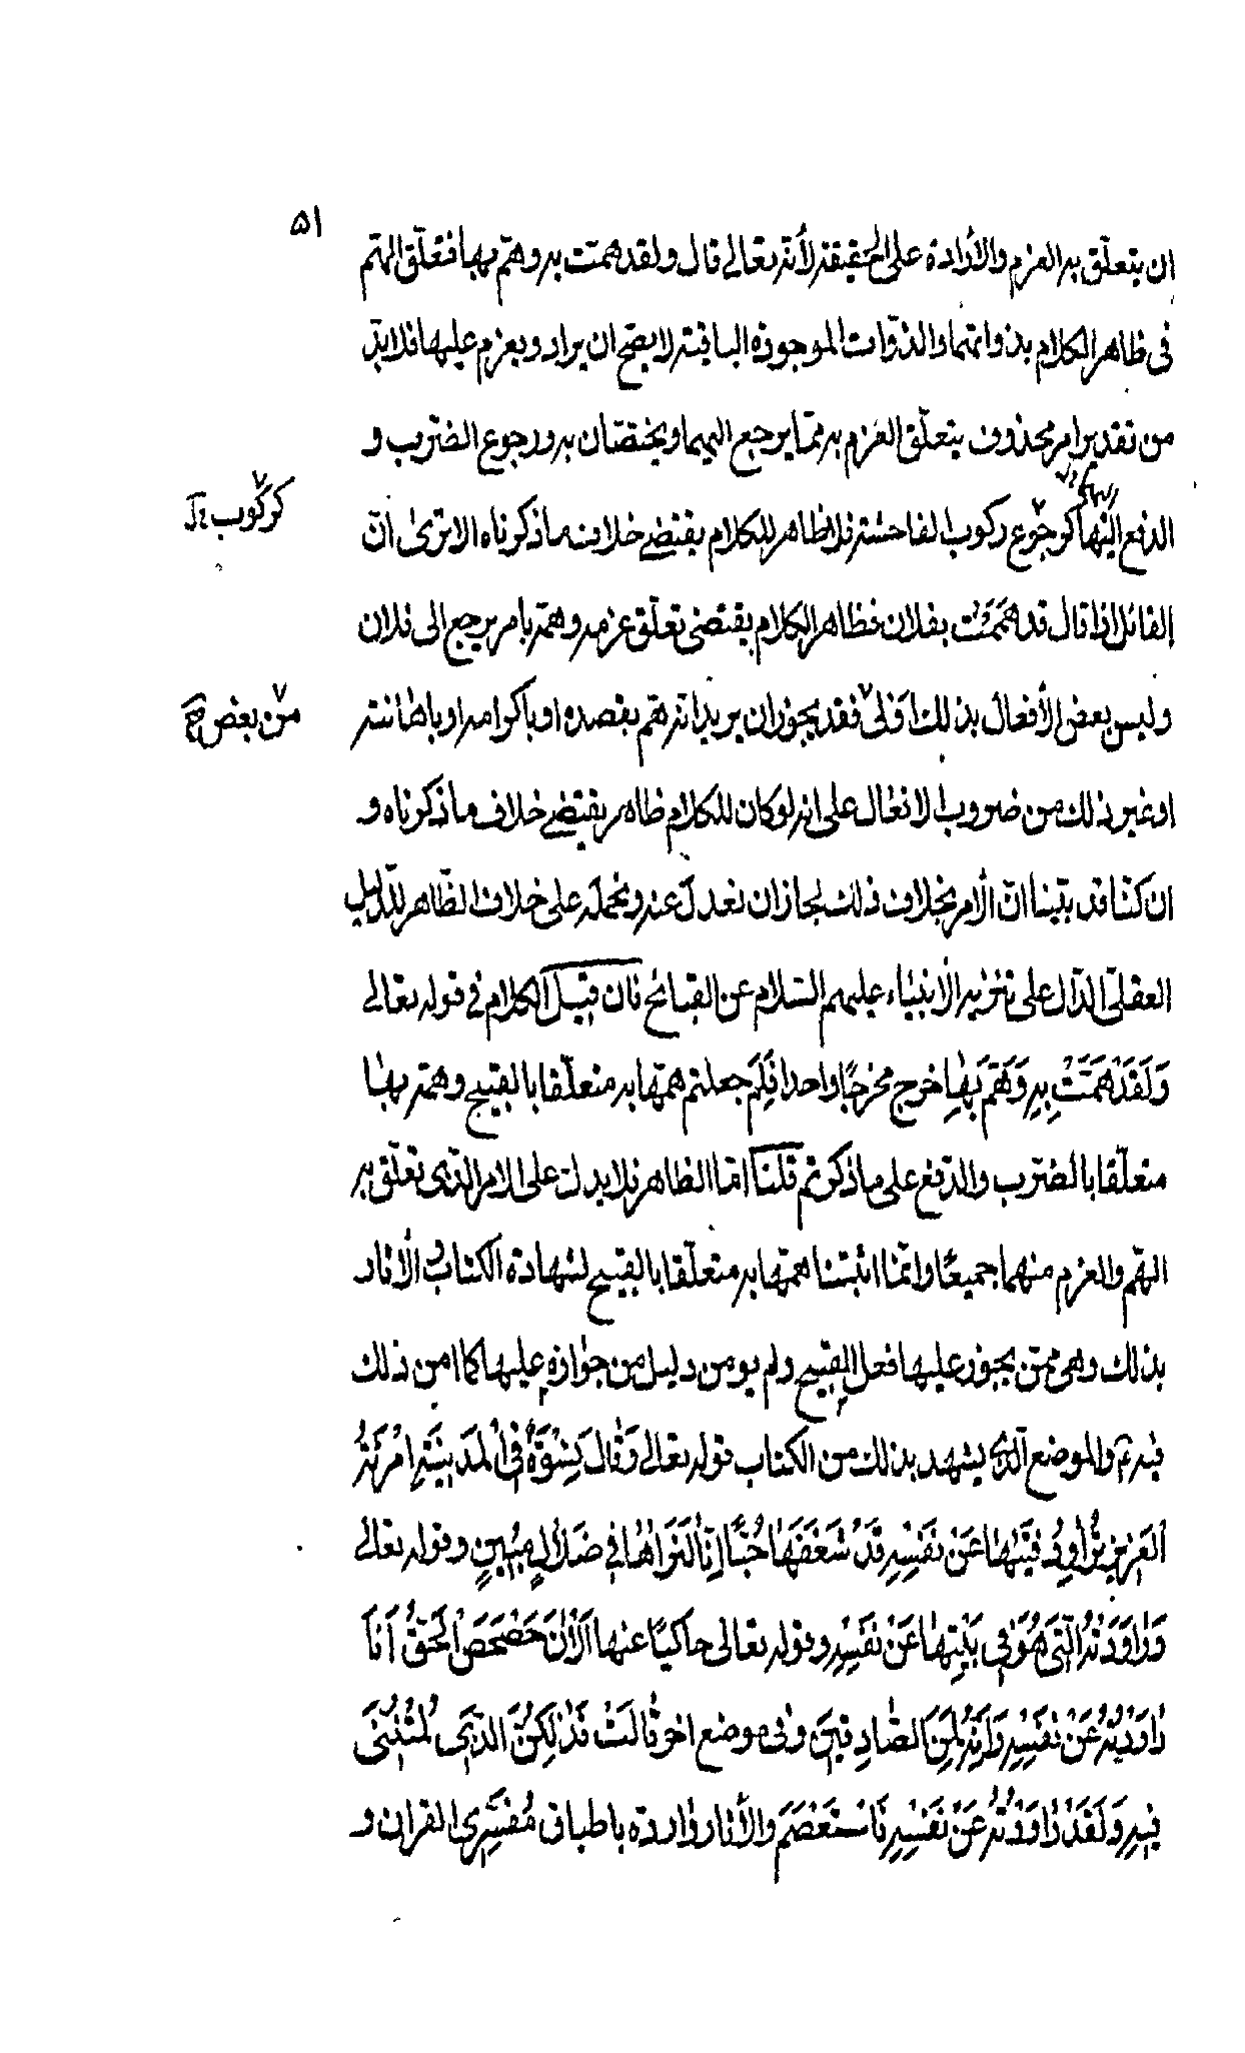 ٥١
ان يتعلّق به العزم والأرادة على الحقيقة لأنّه تعالى قال ولقد همت به وهمّ بها فتعلّق الهمّ
فى ظاهر الكلام بذواتهما والذّوات الموجودة الباقية لا يصحّ ان يراد ويعزم عليها فلابدّ
من تقدير امر محذوف يتعلّق العزم به ممّا يرجع اليهما ويختصّان به ورجوع الضّرب و
الدفع اليها كرجوع ركوب الفاحشة فلا ظاهر للكلام يقتضى خلاف ما ذكرناه الا ترى انّ
كركوب
القائل اذا قال قد هَمَمْتُ بفلان فظاهر الكلام يقتضى تعلّق عزمه وهمّه بامر يرجع الى فلان
وليس بعض الأفعال بذلك اولى فقد يجوز ان يريد انّه همّ بقصده او باكرامه او باهانته
من بعض
او غير ذلك من ضروب الافعال على انه لو كان للكلام ظاهر يقتضى خلاف ما ذكرناه و
ان كنّا قد بيّنا انّ الأمر بخلاف ذلك لجاز ان نعدل عنه ونحمله على خلاف الظّاهر للدّليل
العقلىّ الدّال على تنزيه الأنبياء عليهم السّلام عن القبائح فان قيل الكلام فى قوله تعالى
وَلَقَدْ هَمَّتْ بِهِ وَهَمَّ بِهٰا خرج مخرجًا واحدا فَلِمَ جعلتم همّها به متعلّقا بالقبيح وهمّه بها
متعلّقا بالضّرب والدّفع على ما ذكرتم قلنا امّا الظاهر فلا يدل على الامر الذّى تعلّق به
الهمّ والعزم منهما جميعًا وانّما اثبتنا همّها به متعلّقا بالقبيح لشهادة الكتاب والأثار
بذلك وهى ممّن يجوز عليها فعل القبيح ولم يومن دليل من جوازه عليها كما امن ذلك
فيه والموضع الّذى يشهد بذلك من الكتاب قوله تعالى وَقٰالَ نِسْوَةٌ فِى الْمَدِينَةِ امْرَئَةُ
الْعَزِيزِ تُرٰاوِدُ فَتٰيهٰا عَنْ نَفْسِهِ قَدْ شَغَفَهٰا حُبًّا اِنّٰا لَنَرٰاهٰا فِى ضَلٰالٍ مُبِينٍ وقوله تعالى
وَرٰاوَدَتْهُ الَّتِى هُوَ فِى بَيْتِهٰا عَنْ نَفْسِهِ وقوله تعالى حاكيًا عنها اَلْاٰنَ حَصْحَصَ الْحَقُّ اَنَا
رٰاوَدْتُهُ عَنْ نَفْسِهِ وَاِنَّهُ لَمِنَ الصّٰادِقِينَ وفى موضع اخر قٰالَتْ فَذٰلِكُنَّ الَّذِى لُمْتُنَّنِى
فِيهِ وَلَقَدْ رٰاوَدْتُهُ عَنْ نَفْسِهِ فَاسْتَعْصَمَ والأثار واردة باطباق مُفسّرى القران و